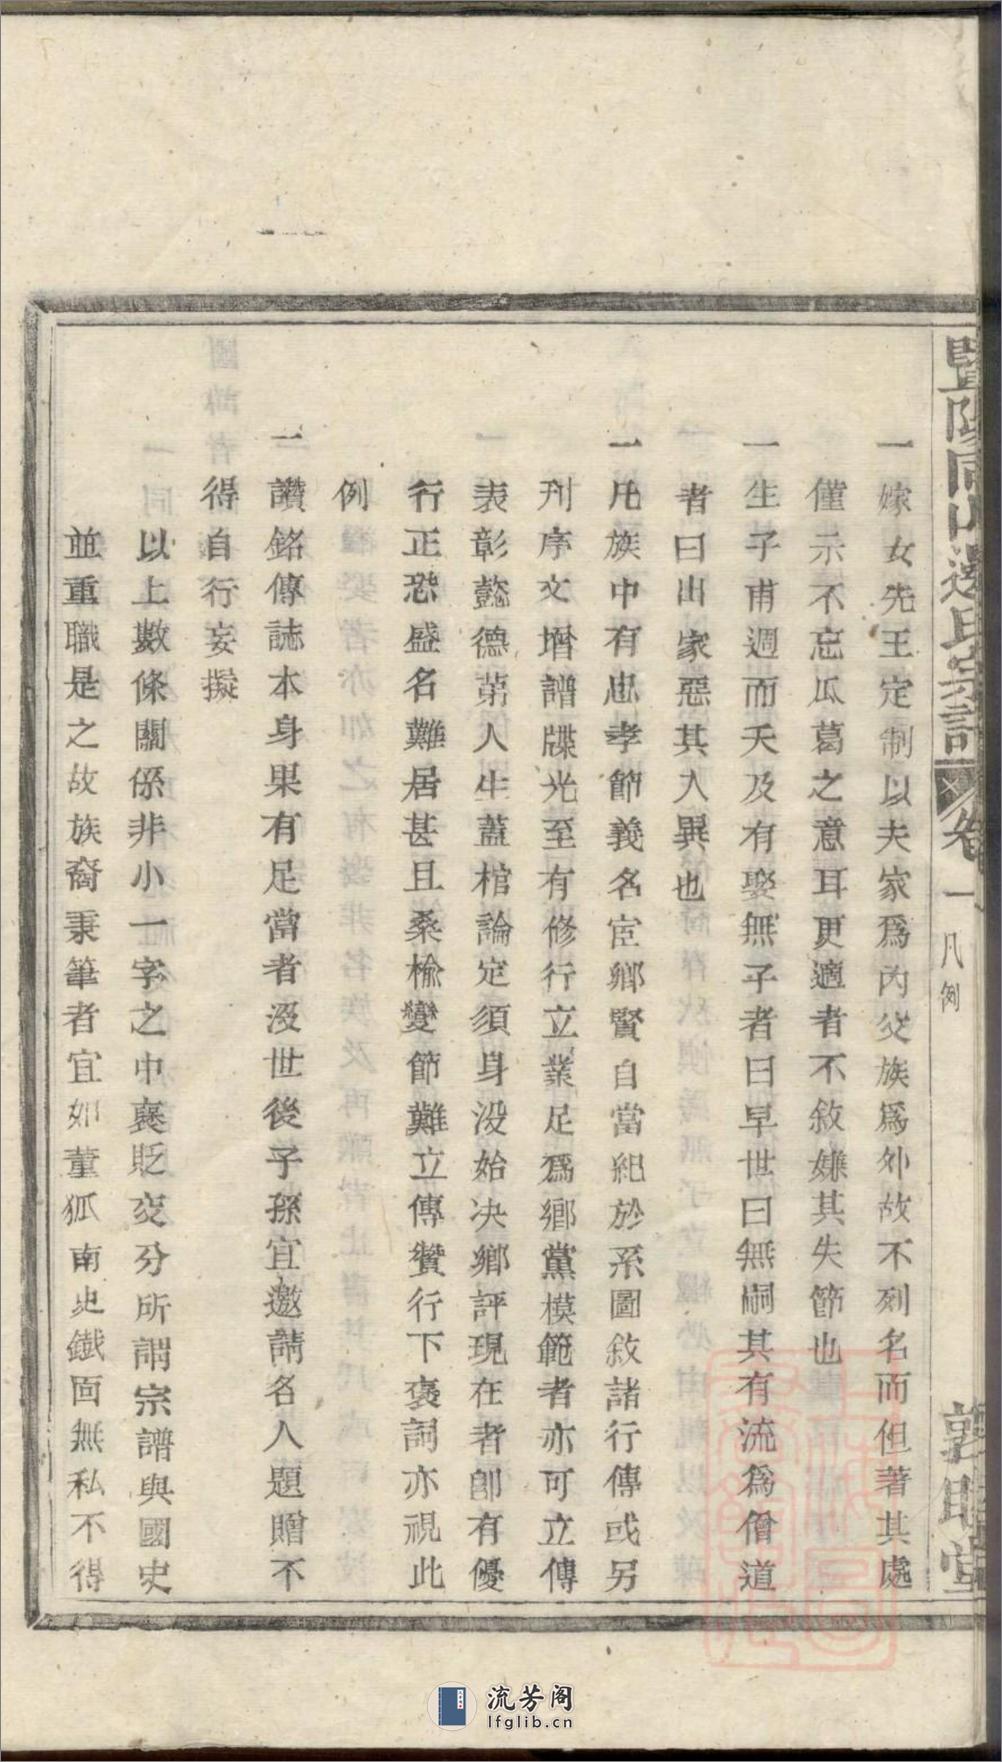 暨陽同山邊氏宗譜 卷一 凡例 敦睦堂
一嫁女先王定制以夫家爲內父族爲外故不列名而但著其處
僅示不忘瓜葛之意耳更適者不敘嫌其失節也
一生子甫週而夭及有娶無子者曰早世曰無嗣其有流爲僧道
者曰出家惡其入異也
一凡族中有忠孝節義名宦鄉賢自當紀於系圖敘諸行傳或另
刊序文增譜牒光至有修行立業足爲鄉黨模範者亦可立傳
表彰懿德苐人生蓋棺論定須身没始决鄉評現在者卽有優
行正恐盛名難居甚且桑榆變節難立傳贊行下褒詞亦視此
例
一讚銘傳誌本身果有足當者没世後子孫宜邀請名人題贈不
得自行妄擬
以上數條關係非小一字之中褒貶攸分所謂宗譜與國史
並重職是之故族裔秉筆者宜如董狐南史鐵面無私不得
流芳阁
lfglib.cn